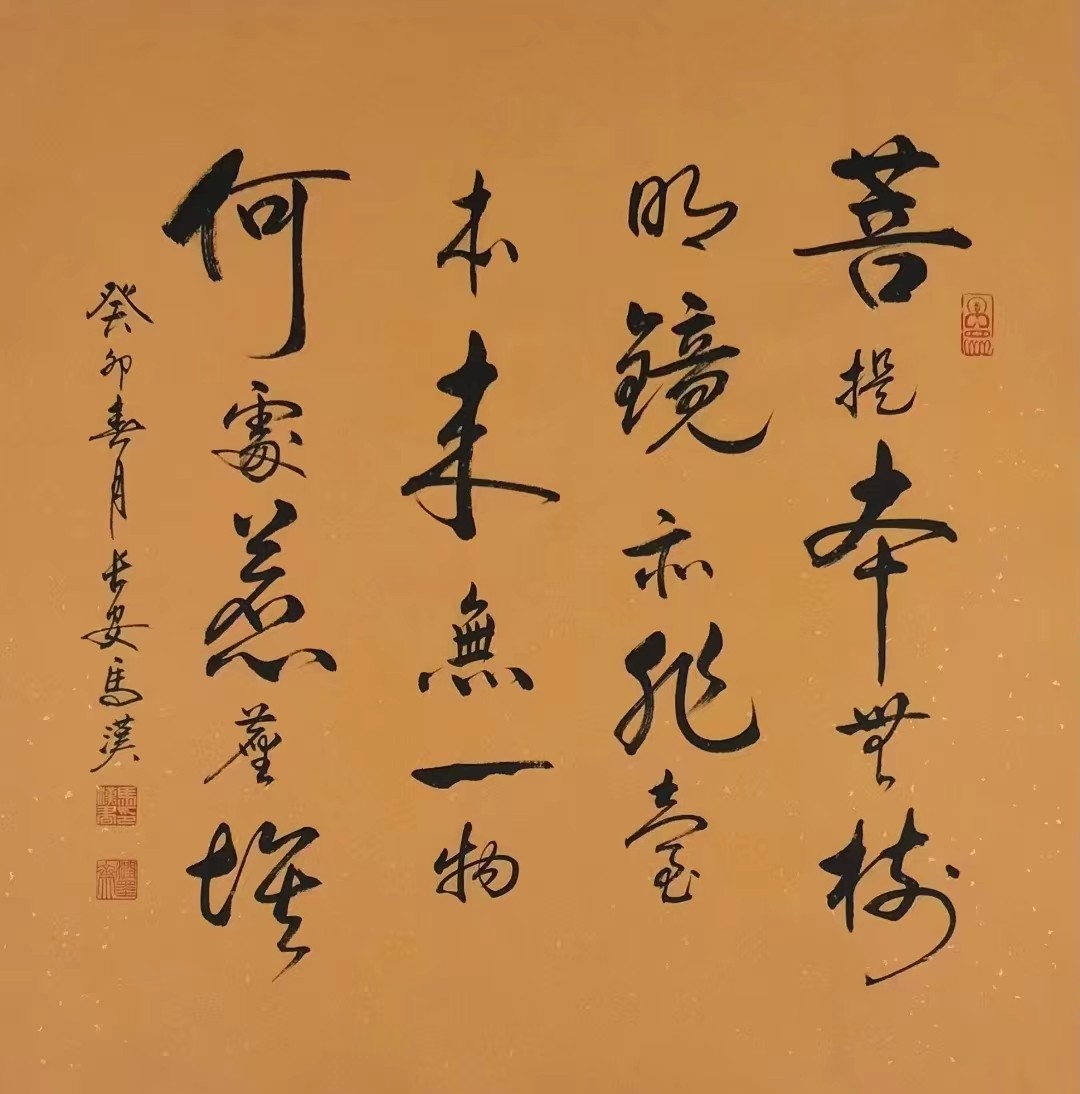 菩提本無樹
明鏡亦非臺
本来無一物
何處惹塵埃
癸卯春月長安馬漢